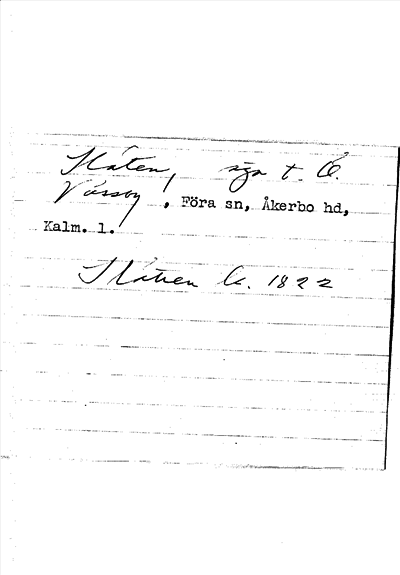 Slåten, äga t. Ö.
Vässby, Föra sn, Åkerbo hd,
Kalm. l.
Slåtten lc. 1822